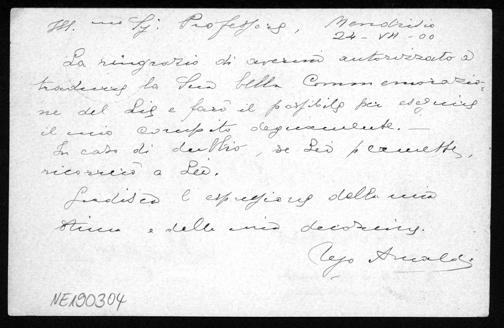 Ill.mo Sig. Professore, Mendrisio
24 - VII - 00
La ringrazio di avermi autorizzato a
tradurre la Sua bella Commemorazio-
ne del Lie e farò il possibile per eseguire
il mio compito degnamente. —
In caso di dubbio, se Lei permette,
ricorrerò a Lei.
Gradisca l'espressione della mia
stima e della mia devozione.
Ugo Amaldi
NE190304